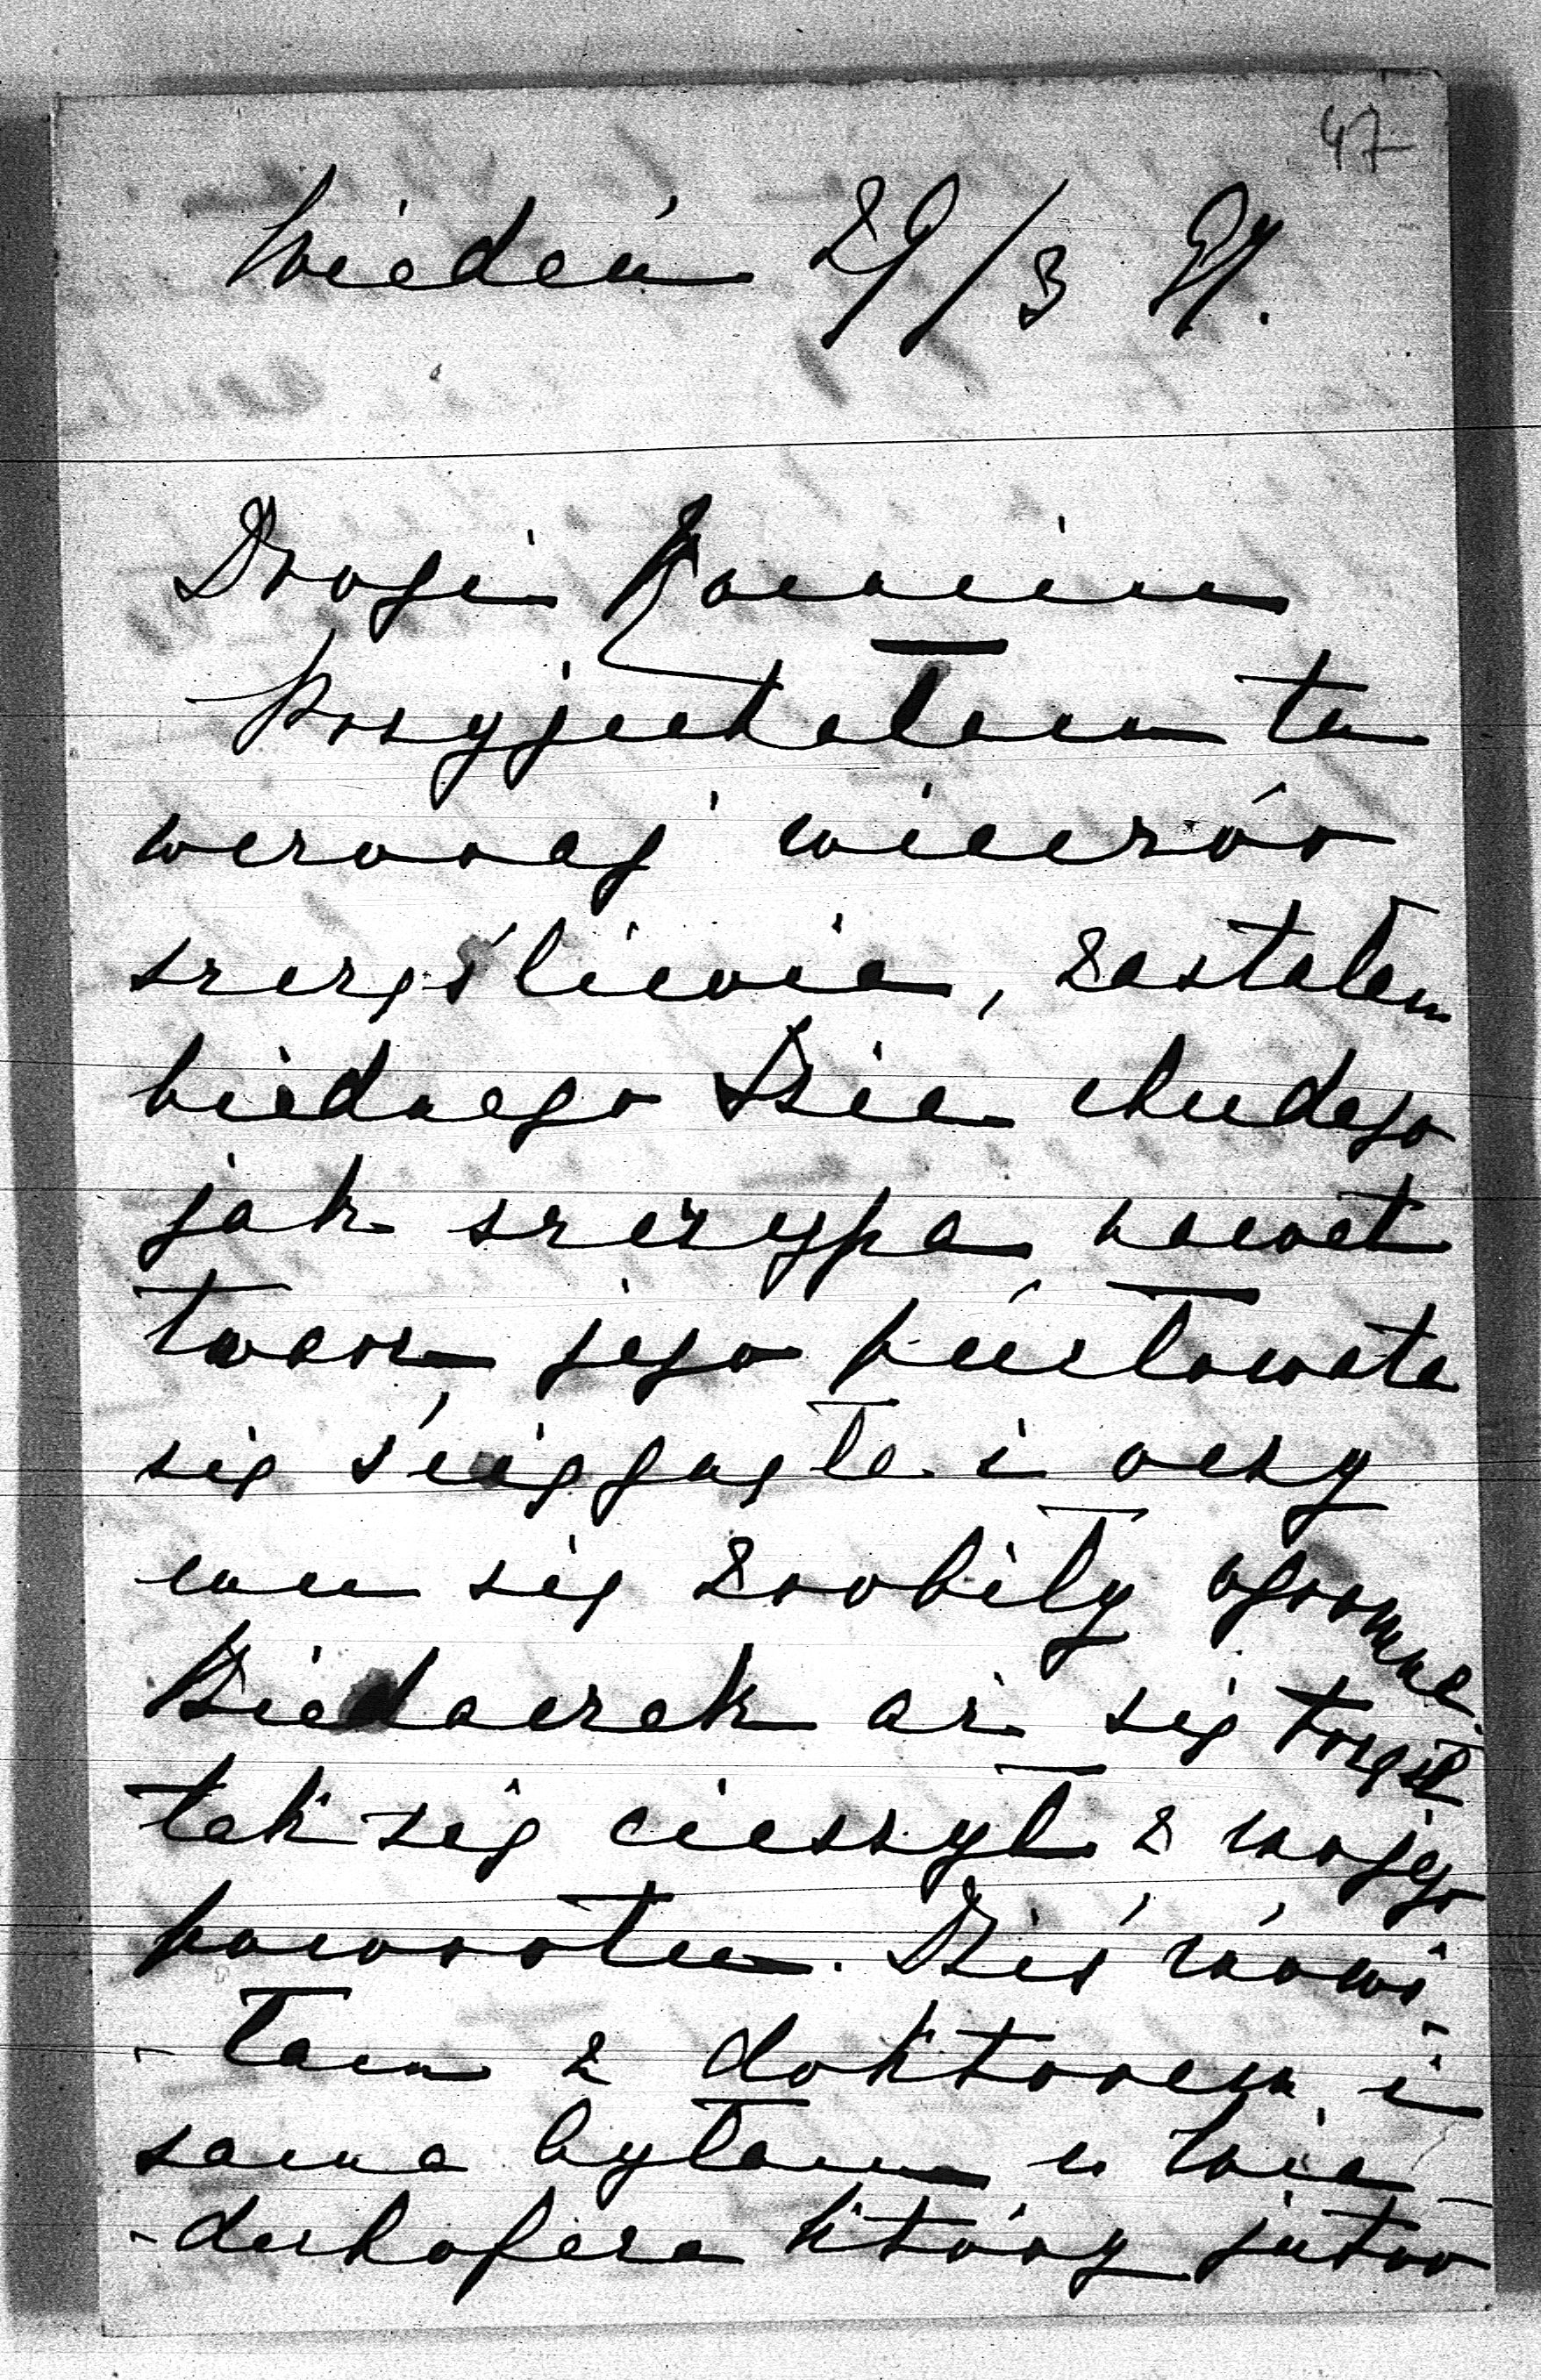 47
Wiedeń 29/3 97.
Drogi
Przyjechałam tu
wczoraj wieczór
szczęśliwie, zastałam
biednego Dzia chudego
jak szczypa nawet
twarz jego pućłowata
się ściągnęła i oczy
mu się zrobiły ogromne.
Biedaczek aż się trząsł
tak się cieszył z mojego
powrotu. Dziś mówi
-łam z doktorem i
sama byłam u Wie
-derhofera który jutro